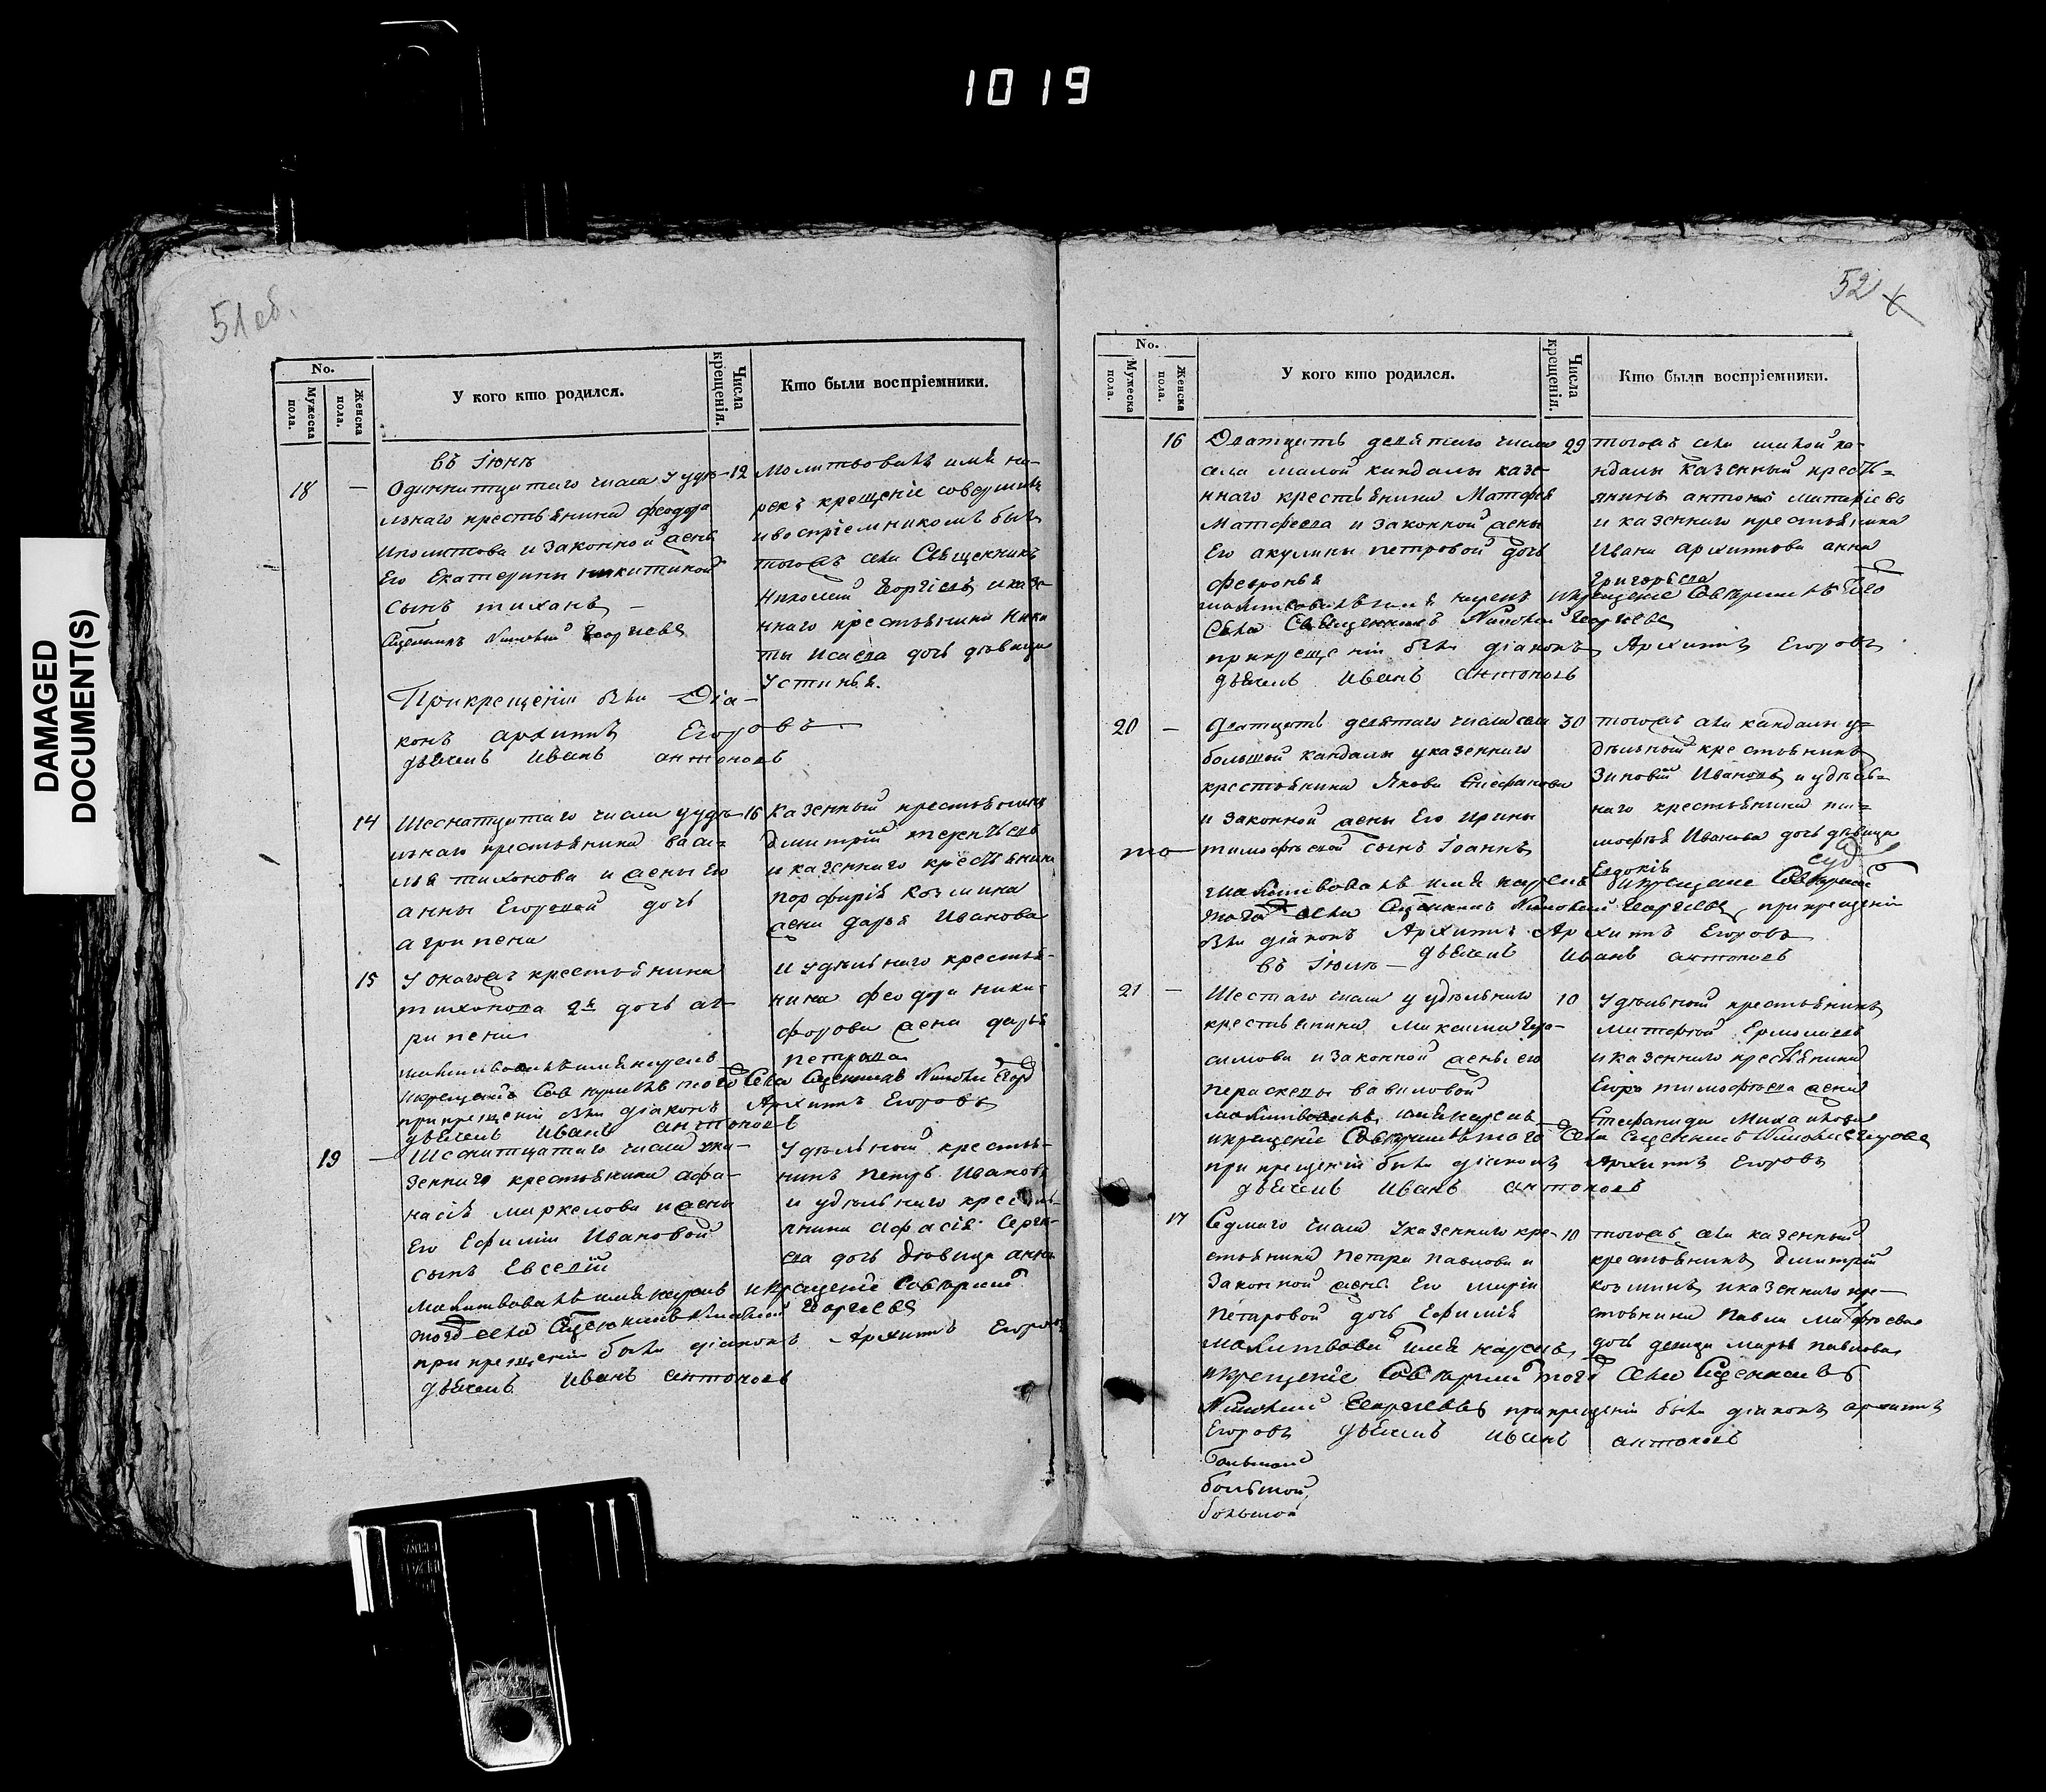 1019
DAMAGED
DOCUMENT(S)
51 об.
No.
Мужеска пола.
Женска пола.
У кого кто родился.
Числа крещенія.
Кто были воспріемники.
въ Іюнѣ
18 — Одиннатцатаго числа у удѣ- 12
льнаго крестьянина феодора
Иполитова и законной жены
Его Екатерины никитиной
сынъ тиханъ —
Сщенникъ Николай Георгиевъ
При крещеніи были Діа-
конъ архипъ Егоровъ
дьячекъ Иванъ антоновъ
Молитвовалъ имя на-
рекъ крещеніе совершилъ
и воспріемникомъ былъ
тогожъ села Священникъ
Николай Георгіевъ и казе-
ннаго крестьянина Ники
ты Исаева дочь девица
Устинья.
14 Шеснатцатаго числа у удѣ- 16
льнаго крестьянина васи-
лья тихонова и жены Его
анны Егоровой дочь
агрипена
Казенный крестьянинъ
дмитрій терентьевъ
и казеннаго крестьянина
порфирія козмина
жена дарья Иванова
15 У онагожъ крестьянина
тихонова 2я дочь аг-
рипена
И Удѣльнаго крестья-
нина феодора ники-
форова жена дарья
петрова
молитвовалъ имя нарекъ
и крещеніе Совершилъ того Села Сщенникъ Николай
при крещеніи были діаконъ Архипъ Егоровъ
дьячекъ Иванъ антоновъ
19 — Шеснатцатаго числа у ка-
зеннаго крестьянина афа-
насія маркелова и жены
Его Ефиміи Ивановой
сынъ Евсевій
Удѣльный крестья-
нинъ петръ Ивановъ
и удѣльнаго крестья-
нина Сергѣ-
ева дочь девица анна
молитвовалъ имя нарекъ и крещеніе Совершилъ
того села Сщенникъ Николай Георгиевъ
при крещеніи были діаконъ Архипъ Егоровъ
дьячекъ Иванъ антоновъ
52
No.
Мужеска пола.
Женска пола.
У кого кто родился.
Числа крещенія.
Кто были воспріемники.
16 Дватцать девятаго числа 29
села малой кандалы казе-
ннаго крестьянина Матфея
Матфеева и законной жены
Его акулины петровой дочь
февронья
тогожъ села малой ка-
ндалы казенный крест-
янинъ антонъ
и казеннаго крестьянина
Ивана архипова анна
григорьева
молитвовалъ имя нарекъ и крещеніе Совершилъ того
Села Священникъ Николай Георгиевъ
при крещеніи были діаконъ Архипъ Егоровъ
дьячекъ Иванъ антоновъ
20 — Дватцать девятаго числа села 30
большой кандалы у казеннаго
крестьянина Якова Стефанова
и законной жены Его Ирины
тимофѣевой сынъ Іоаннъ
тогожъ села кандалы у-
дѣльный крестьянинъ
Зиновій Ивановъ и удѣль-
наго крестьянина ти-
мофѣя Иванова дочь девица
Евдокія
молитвовалъ имя нарекъ и крещеніе Совершилъ
того села Сщенникъ Николай Георгиевъ, при крещеніи
были діаконъ Архипъ Архипъ Егоровъ
дьячекъ Иванъ антоновъ
въ Іюлѣ —
21 — Шестаго числа у удѣльнаго 10
крестьянина Максима Гера-
симова и законной жены его
Пераскевы вавиловой
Удѣльный крестьянинъ
Ермолаевъ
и казеннаго крестьянина
Егора тимофѣева жена
Стефанида Михайлова
молитвовалъ имя нарекъ
и крещеніе Совершилъ того Села Сщенникъ Николай
при крещеніи были діаконъ Архипъ Егоровъ
дьячекъ Иванъ антоновъ
17 Седмаго числа у казеннаго кре- 10
стьянина петра павлова и
законной жены Его маріи
петаровой дочь Ефимія
тогожъ села казенный
крестьянинъ дмитрій
козминъ и казеннаго кре-
стьянина павла матфѣева
дочь девица марья павлова
молитвовалъ имя нарекъ
и крещеніе Совершилъ того Села Сщенникъ
Николай Георгиевъ при крещеніи были діаконъ архипъ
Егоровъ дьячекъ иванъ антоновъ
большой
большой
большой